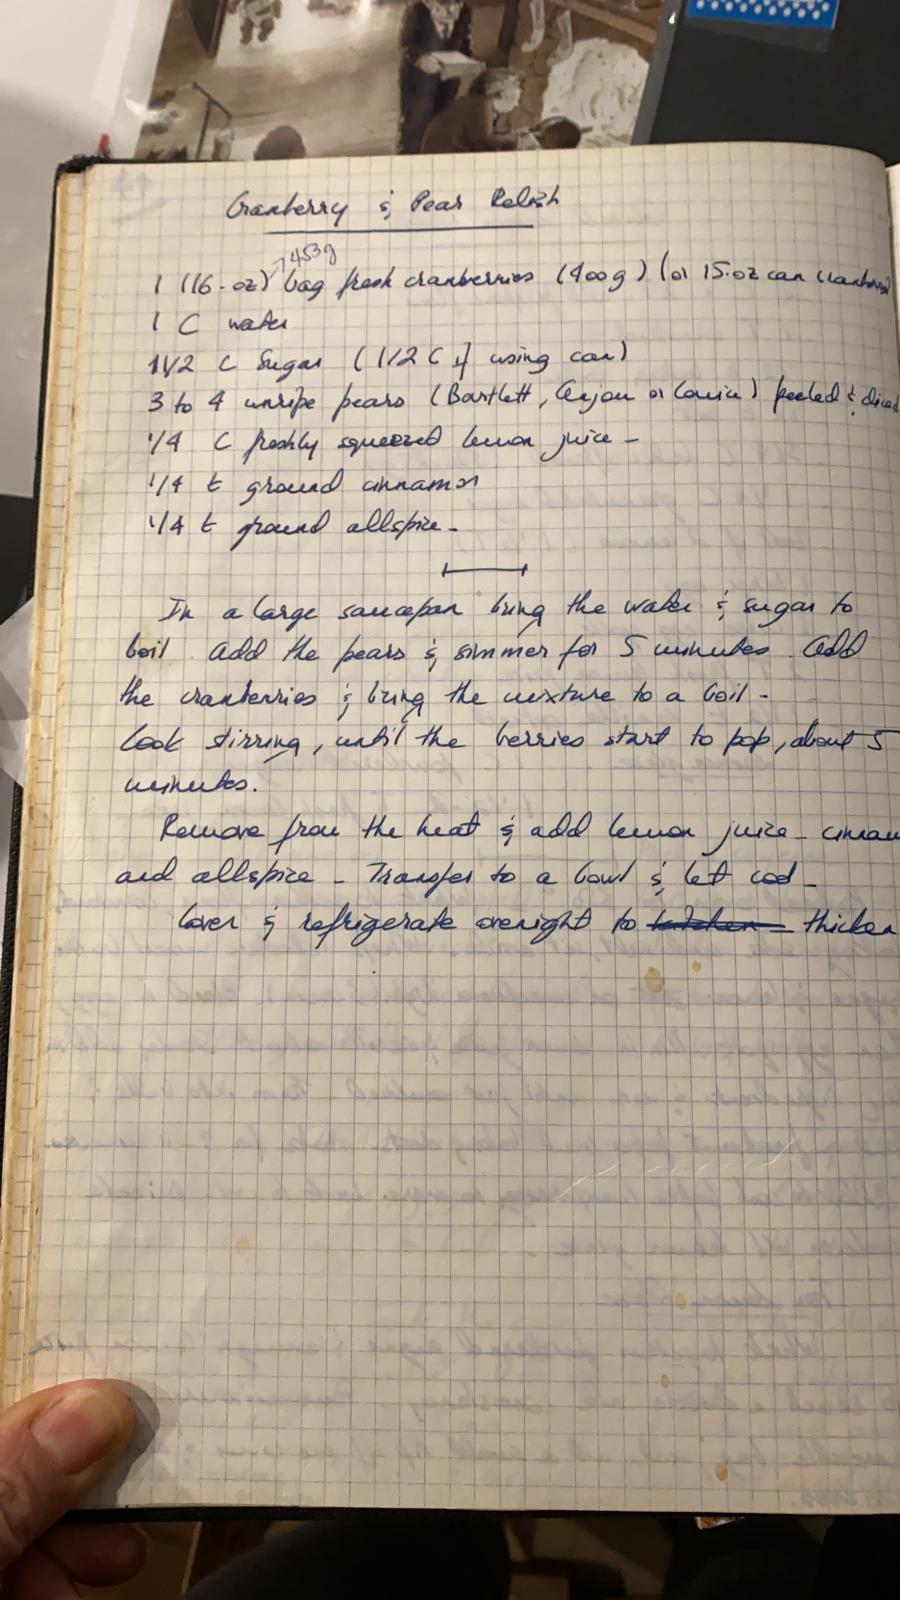 Cranberry & Pear Relish
→453g
1 (16-oz) bag fresh cranberries (400g) (or 15.oz can cranberries
1 C water
1 1/2 C Sugar (1/2 C if using can)
3 to 4 unripe pears (Bartlett, Anjou or Comice) peeled & diced
1/4 C freshly squeezed lemon juice -
1/4 t ground cinnamon
1/4 t ground allspice -
In a large saucepan bring the water & sugar to
boil. Add the pears & simmer for 5 minutes. Add
the cranberries & bring the mixture to a boil -
Cook stirring, until the berries start to pop, about 5
minutes.
Remove from the heat & add lemon juice - cinnam
and allspice - Transfer to a bowl & let cool -
Cover & refrigerate overnight to thicken